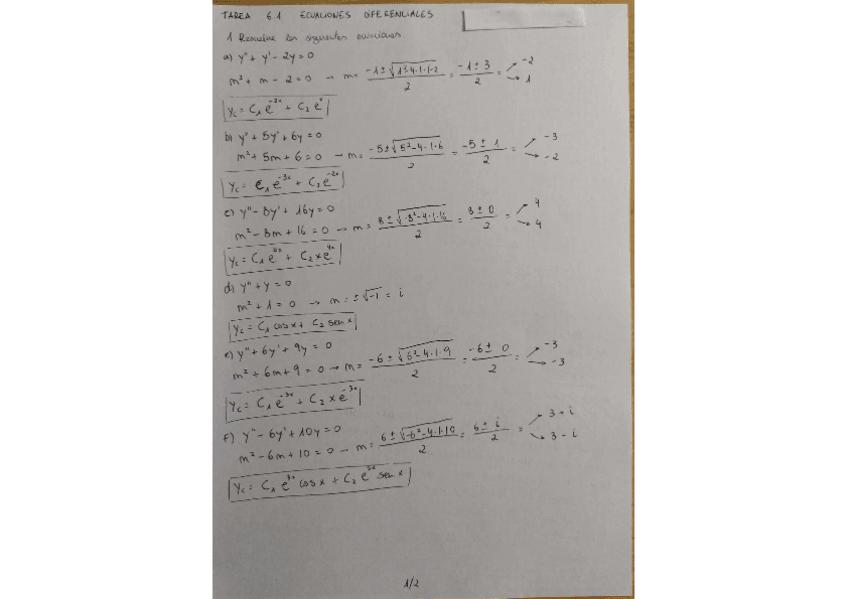 TAREA 6.1 ECUACIONES DIFERENCIALES
1 Resuelve las siguientes ecuaciones
a) y'' + y' - 2y = 0
m² + m - 2 = 0 → m = (-1 ± √(1±4·1·1·2))/2 = (-1 ± 3)/2 = -2, 1
Yc = C1 e^-2x + C2 e^x
b) y'' + 5y' + 6y = 0
m² + 5m + 6 = 0 → m = (-5 ± √(5²-4·1·6))/2 = (-5 ± 1)/2 = -3, -2
Yc = C1 e^-3x + C2 e^-2x
c) y'' - 8y' + 16y = 0
m² - 8m + 16 = 0 → m = (8 ± √(-8²-4·1·16))/2 = (8 ± 0)/2 = 4, 4
Yc = C1 e^4x + C2 x e^4x
d) y'' + y = 0
m² + 1 = 0 → m = ±√-1 = i
Yc = C1 cos x + C2 sen x
e) y'' + 6y' + 9y = 0
m² + 6m + 9 = 0 → m = (-6 ± √(6²-4·1·9))/2 = (-6 ± 0)/2 = -3, -3
Yc = C1 e^-3x + C2 x e^-3x
f) y'' - 6y' + 10y = 0
m² - 6m + 10 = 0 → m = (6 ± √(-6²-4·1·10))/2 = (6 ± i)/2 = 3 + i, 3 - i
Yc = C1 e^3x cos x + C2 e^3x sen x
1/2